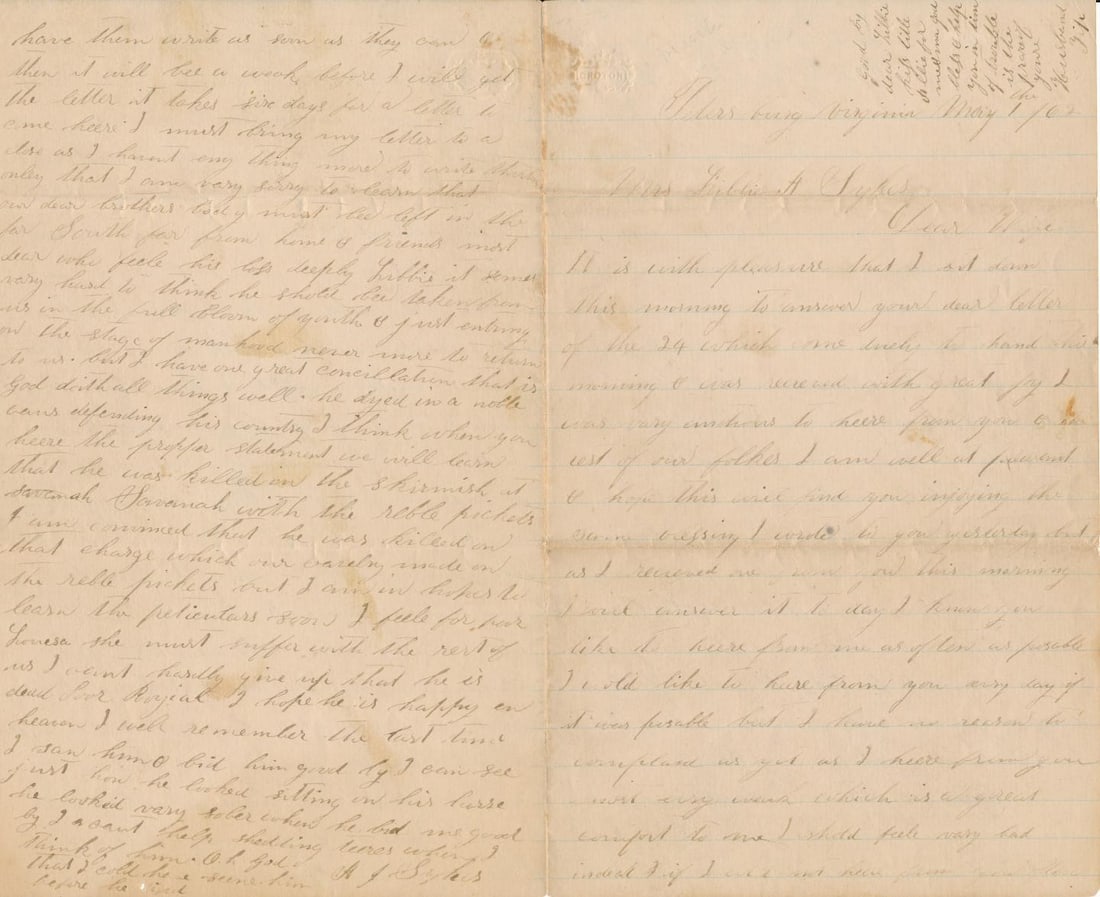 Petersburg Virginia May 1 the /62
Mrs Libbie A Sykes
Dear Wife
It is with pleasure that I set down
this morning to answer your dear letter
of the 24 which came duely to hand this
morning & was receved with great joy I
was vary anxtious to heere from you &
rest of our folkes I am well at presant
& hope this will find you injoying the
same blessing I wrote to you yesterday but
as I receved one from you this morning
I will answer it to day I know you
like to heere from me as often as posable
I wold like to heare from you evry day if
it was posable but I have no reason to
compland as yet as I heere from you
most evry weak which is a great
comfort to me I shold feele vary bad
indeed if I did not heere from you
have them write as soon as they can &
then it will bee a weak before I will get
the letter it takes six days for a letter to
come heere I must bring my letter to a
close as I havent eny thing more to write
only that I am vary sorry to learn that
our dear brothers body must be left in the
far South far from home & friends most
dear who feele his loss deeply Libbie it semes
vary hard to think he shold bee taken from
us in the full bloom of youth & just entring
on the stage of manhood never more to return
to us. but I have one great concillation that is
God doith all things well. he dyed in a noble
caus defending his country I think when you
heere the propper statement we will learn
that he was killed in the skirmish at
savanah Savanah with the reble pickets
I am convinced that he was killed on
that charge which our cavelry made on
the reble pickets but I am in hopes to
learn the peticulars soon I feele for poor
Lovesa she must suffer with the rest of
us I cant hardly give up that he is
dead Poor Royial I hope he is happy en
heaven I well remember the last time
I saw him & bid him good by I can see
just how he looked sitting on his horse
he looked vary sober when he bid me good
by I cant help shedding teares when I
think of him. Oh God
that I cold have seene him
before he died
A J Sykes
good by
dear Libbie
kiss little
Allie for
me
is the
prare of
youre
Husband